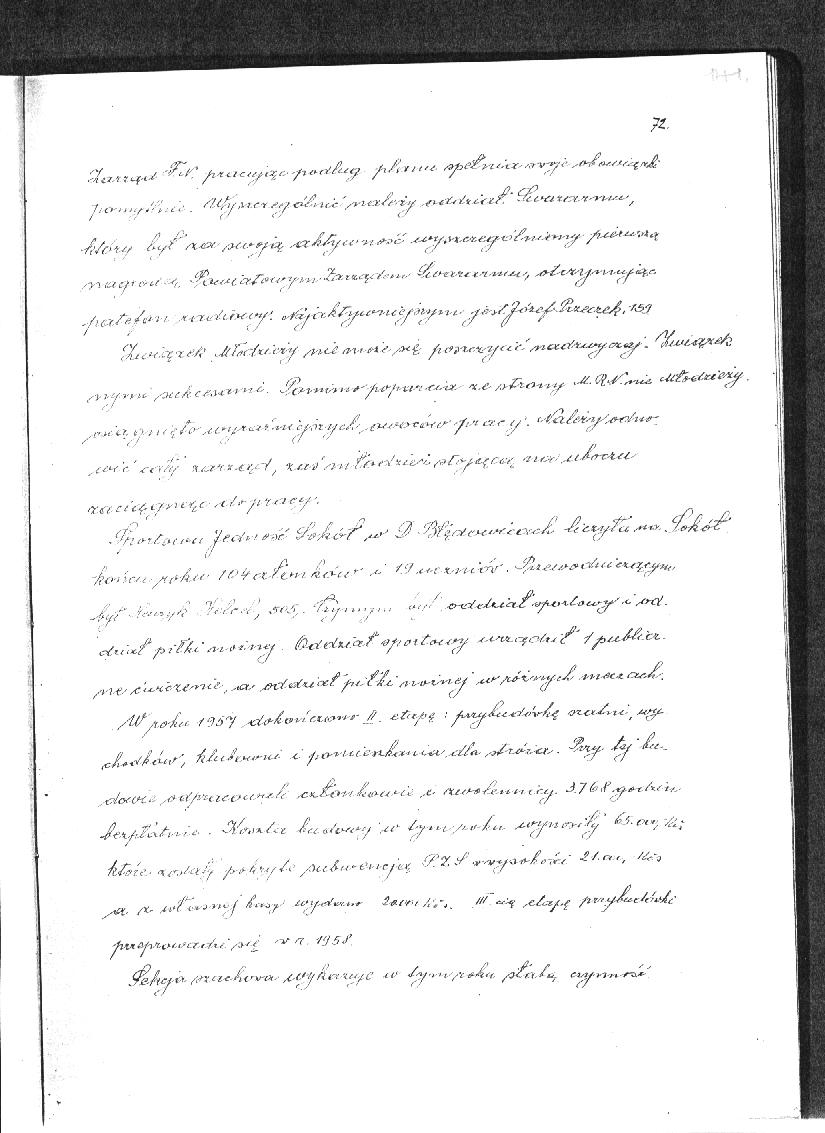 72.
Zarząd F.N. pracując podług planu spełnia swoje obowiązki
pomyślnie. Wyszczególnić należy oddział Swazarmu,
który był za swoją aktywność wyszczególniony pierwszą
nagrodą Powiatowym Zarządem Swazarmu, otrzymując
patefon radiowy. Najaktywniejszym jest Józef Przeczek, 159
Związek Młodzieży nie może się poszczycić nadzwyczaj- Związek
nymi sukcesami. Pomimo poparcia ze strony M.R.N. nie Młodzieży.
osiągnięto wyraźniejszych owoców pracy. Należy odno-
wić cały zarząd, zaś młodzież stojącą na uboczu
zaciągnąć do pracy.
Sportowa Jedność Sokół w D. Błędowicach liczyła na Sokół
końcu roku 104 członków i 19 uczniów. Przewodniczącym
był Henryk 505, Czynnym był oddział sportowy i od-
dział piłki nożnej. Oddział sportowy urządził 1 publicz-
ne ćwiczenie, a oddział piłki nożnej w różnych meczach.
W roku 1957 dokończono II. etapę: przybudówkę szatni, wy-
chodków, klubowni i pomieszkania dla stróża. Przy tej bu-
dowie odpracowali członkowie i zwolennicy 3.768 godzin
bezpłatnie. Koszta budowy w tym roku wynosiły 65.000 Kčs
które zostały pokryte subwencją P.Z.S w wysokości 21.000 Kčs
a z własnej kasy wydano Kčs. III-cią etapę przybudówki
przeprowadzi się w r. 1958.
Sekcja szachowa wykazuje w tym roku słabą czynność